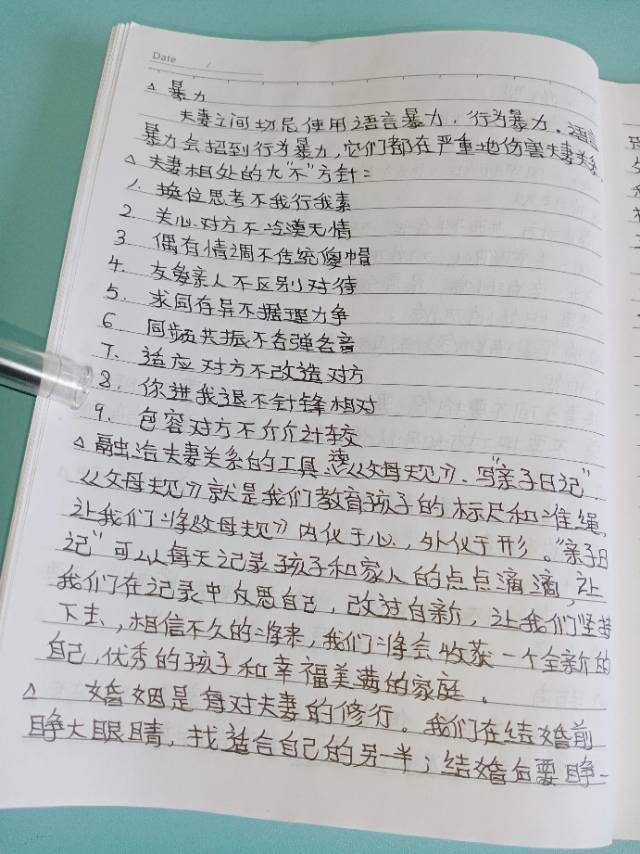 Date
△ 暴力
夫妻之间切忌使用语言暴力,行为暴力。语言
暴力会招到行为暴力,它们都在严重地伤害夫妻关系
△ 夫妻相处的九"不"方针:
1. 换位思考不我行我素
2 关心对方不冷漠无情
3 偶有情调不传统
4. 友每亲人不区别对待
5. 求同存异不据理力争
6 同频共振不各弹各音
7. 适应对方不改造对方
8. 你进我退不针锋相对
9. 包容对方不介介计较
△ 融洽夫妻关系的工具 读《父母规》、写"亲子日记"
《父母规》就是我们教育孩子的标尺和准绳,
让我们将《父母规》内化于心,外化于形。"亲子日
记"可以每天记录孩子和家人的点点滴滴,让
我们在记录中反思自己,改过自新,让我们坚持
下去,相信不久的将来,我们将会收获一个全新的
自己,优秀的孩子和幸福美满的家庭。
△ 婚姻是每对夫妻的修行。我们在结婚前
睁大眼睛,找适合自己的另一半;结婚后要睁一